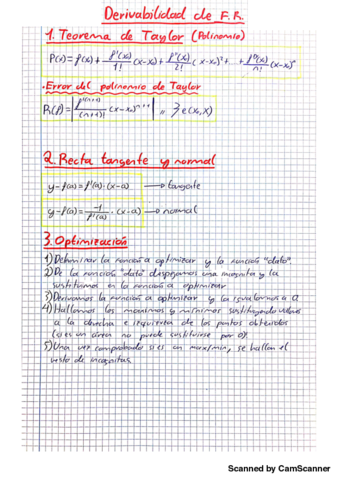 Derivabilidad de F.R.
1. Teorema de Taylor (Polinomio)
P(x) = f(x₀) + f'(x₀)/1! (x-x₀) + f''(x₀)/2! (x-x₀)² + ... + fⁿ(x₀)/n! (x-x₀)ⁿ
· Error del polinomio de Taylor
2. Recta tangente y normal
y - f(a) = f'(a) · (x-a) → tangente
y - f(a) = -1/f'(a) · (x-a) → normal
3. Optimización
1) Determinar la función a optimizar y la función "dato".
2) De la función "dato" despejamos una incognita y la
sustituimos en la función a optimizar
3) Derivamos la función a optimizar y la igualamos a 0
4) Hallamos los maximos y mínimos sustituyendo valores
a la derecha e izquierda de los puntos obtenidos
(si es un área no puede sustituirse por 0).
5) Una vez comprobado si es un max/min, se hallan el
resto de incognitas.
Scanned by CamScanner